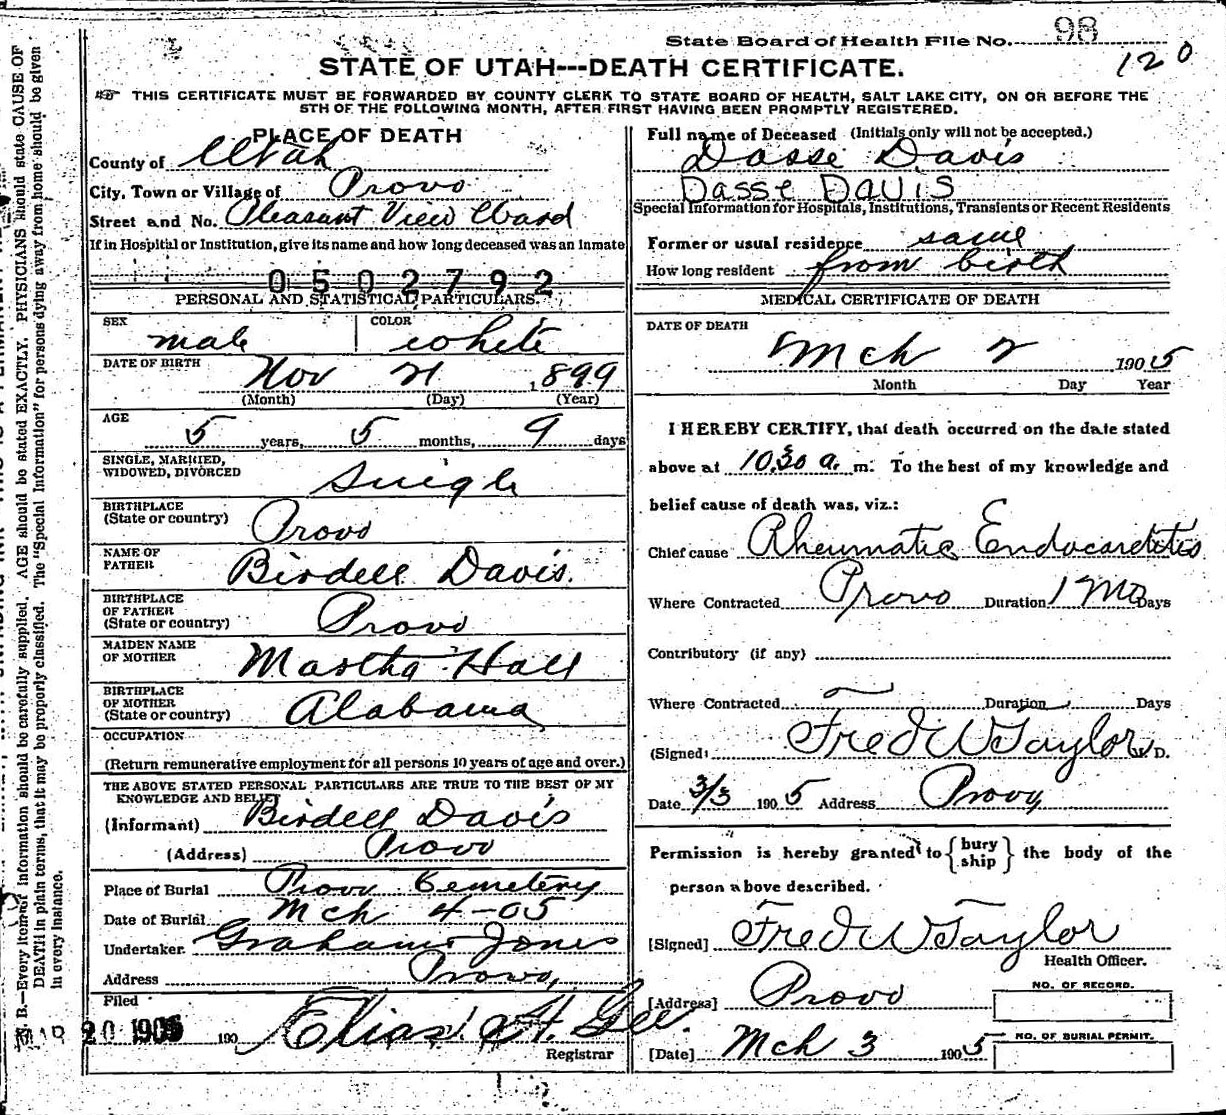 State Board of Health File No. 98
120
STATE OF UTAH---DEATH CERTIFICATE.
THIS CERTIFICATE MUST BE FORWARDED BY COUNTY CLERK TO STATE BOARD OF HEALTH, SALT LAKE CITY, ON OR BEFORE THE
5TH OF THE FOLLOWING MONTH, AFTER FIRST HAVING BEEN PROMPTLY REGISTERED.
PLACE OF DEATH
County of Utah
City, Town or Village of Provo
Street and No. Pleasant View Ward
If in Hospital or Institution, give its name and how long deceased was an inmate
0502792
PERSONAL AND STATISTICAL PARTICULARS.
SEX male COLOR white
DATE OF BIRTH Nov 21, 1899
(Month) (Day) (Year)
AGE 5 years, 5 months, 9 days
SINGLE, MARRIED,
WIDOWED, DIVORCED Single
BIRTHPLACE
(State or country) Provo
NAME OF
FATHER Birdell Davis.
BIRTHPLACE
OF FATHER
(State or country) Provo
MAIDEN NAME
OF MOTHER Martha Hall
BIRTHPLACE
OF MOTHER
(State or country) Alabama
OCCUPATION
(Return remunerative employment for all persons 10 years of age and over.)
THE ABOVE STATED PERSONAL PARTICULARS ARE TRUE TO THE BEST OF MY
KNOWLEDGE AND BELIEF
(Informant) Birdell Davis
(Address) Provo
Place of Burial Provo Cemetery
Date of Burial Mch 4-05
Undertaker. Graham Jones
Address Provo,
Filed
MAR 20 1905 190 Elias H. Gee.
Registrar
Full name of Deceased (Initials only will not be accepted.)
Dasse Davis
DASSE DAVIS
Special Information for Hospitals, Institutions, Transients or Recent Residents
Former or usual residence same
How long resident from birth
MEDICAL CERTIFICATE OF DEATH
DATE OF DEATH
Mch 2 1905
Month Day Year
I HEREBY CERTIFY, that death occurred on the date stated
above at 10.30 a. m. To the best of my knowledge and
belief cause of death was, viz.:
Chief cause Rheumatic Endocarditis
Where Contracted Provo Duration 1 Mo Days
Contributory (if any)
Where Contracted Duration Days
(Signed) Fred W Taylor M. D.
Date 3/3 1905 Address Provo
Permission is hereby granted to {bury ship} the body of the
person above described.
[Signed] Fred W Taylor
Health Officer.
[Address] Provo
NO. OF RECORD.
[Date] Mch 3 1905
NO. OF BURIAL PERMIT.
N. B.—Every item of information should be carefully supplied. AGE should be stated EXACTLY. PHYSICIANS should state CAUSE OF
DEATH in plain terms, that it may be properly classified. The "Special Information" for persons dying away from home should be given
in every instance.